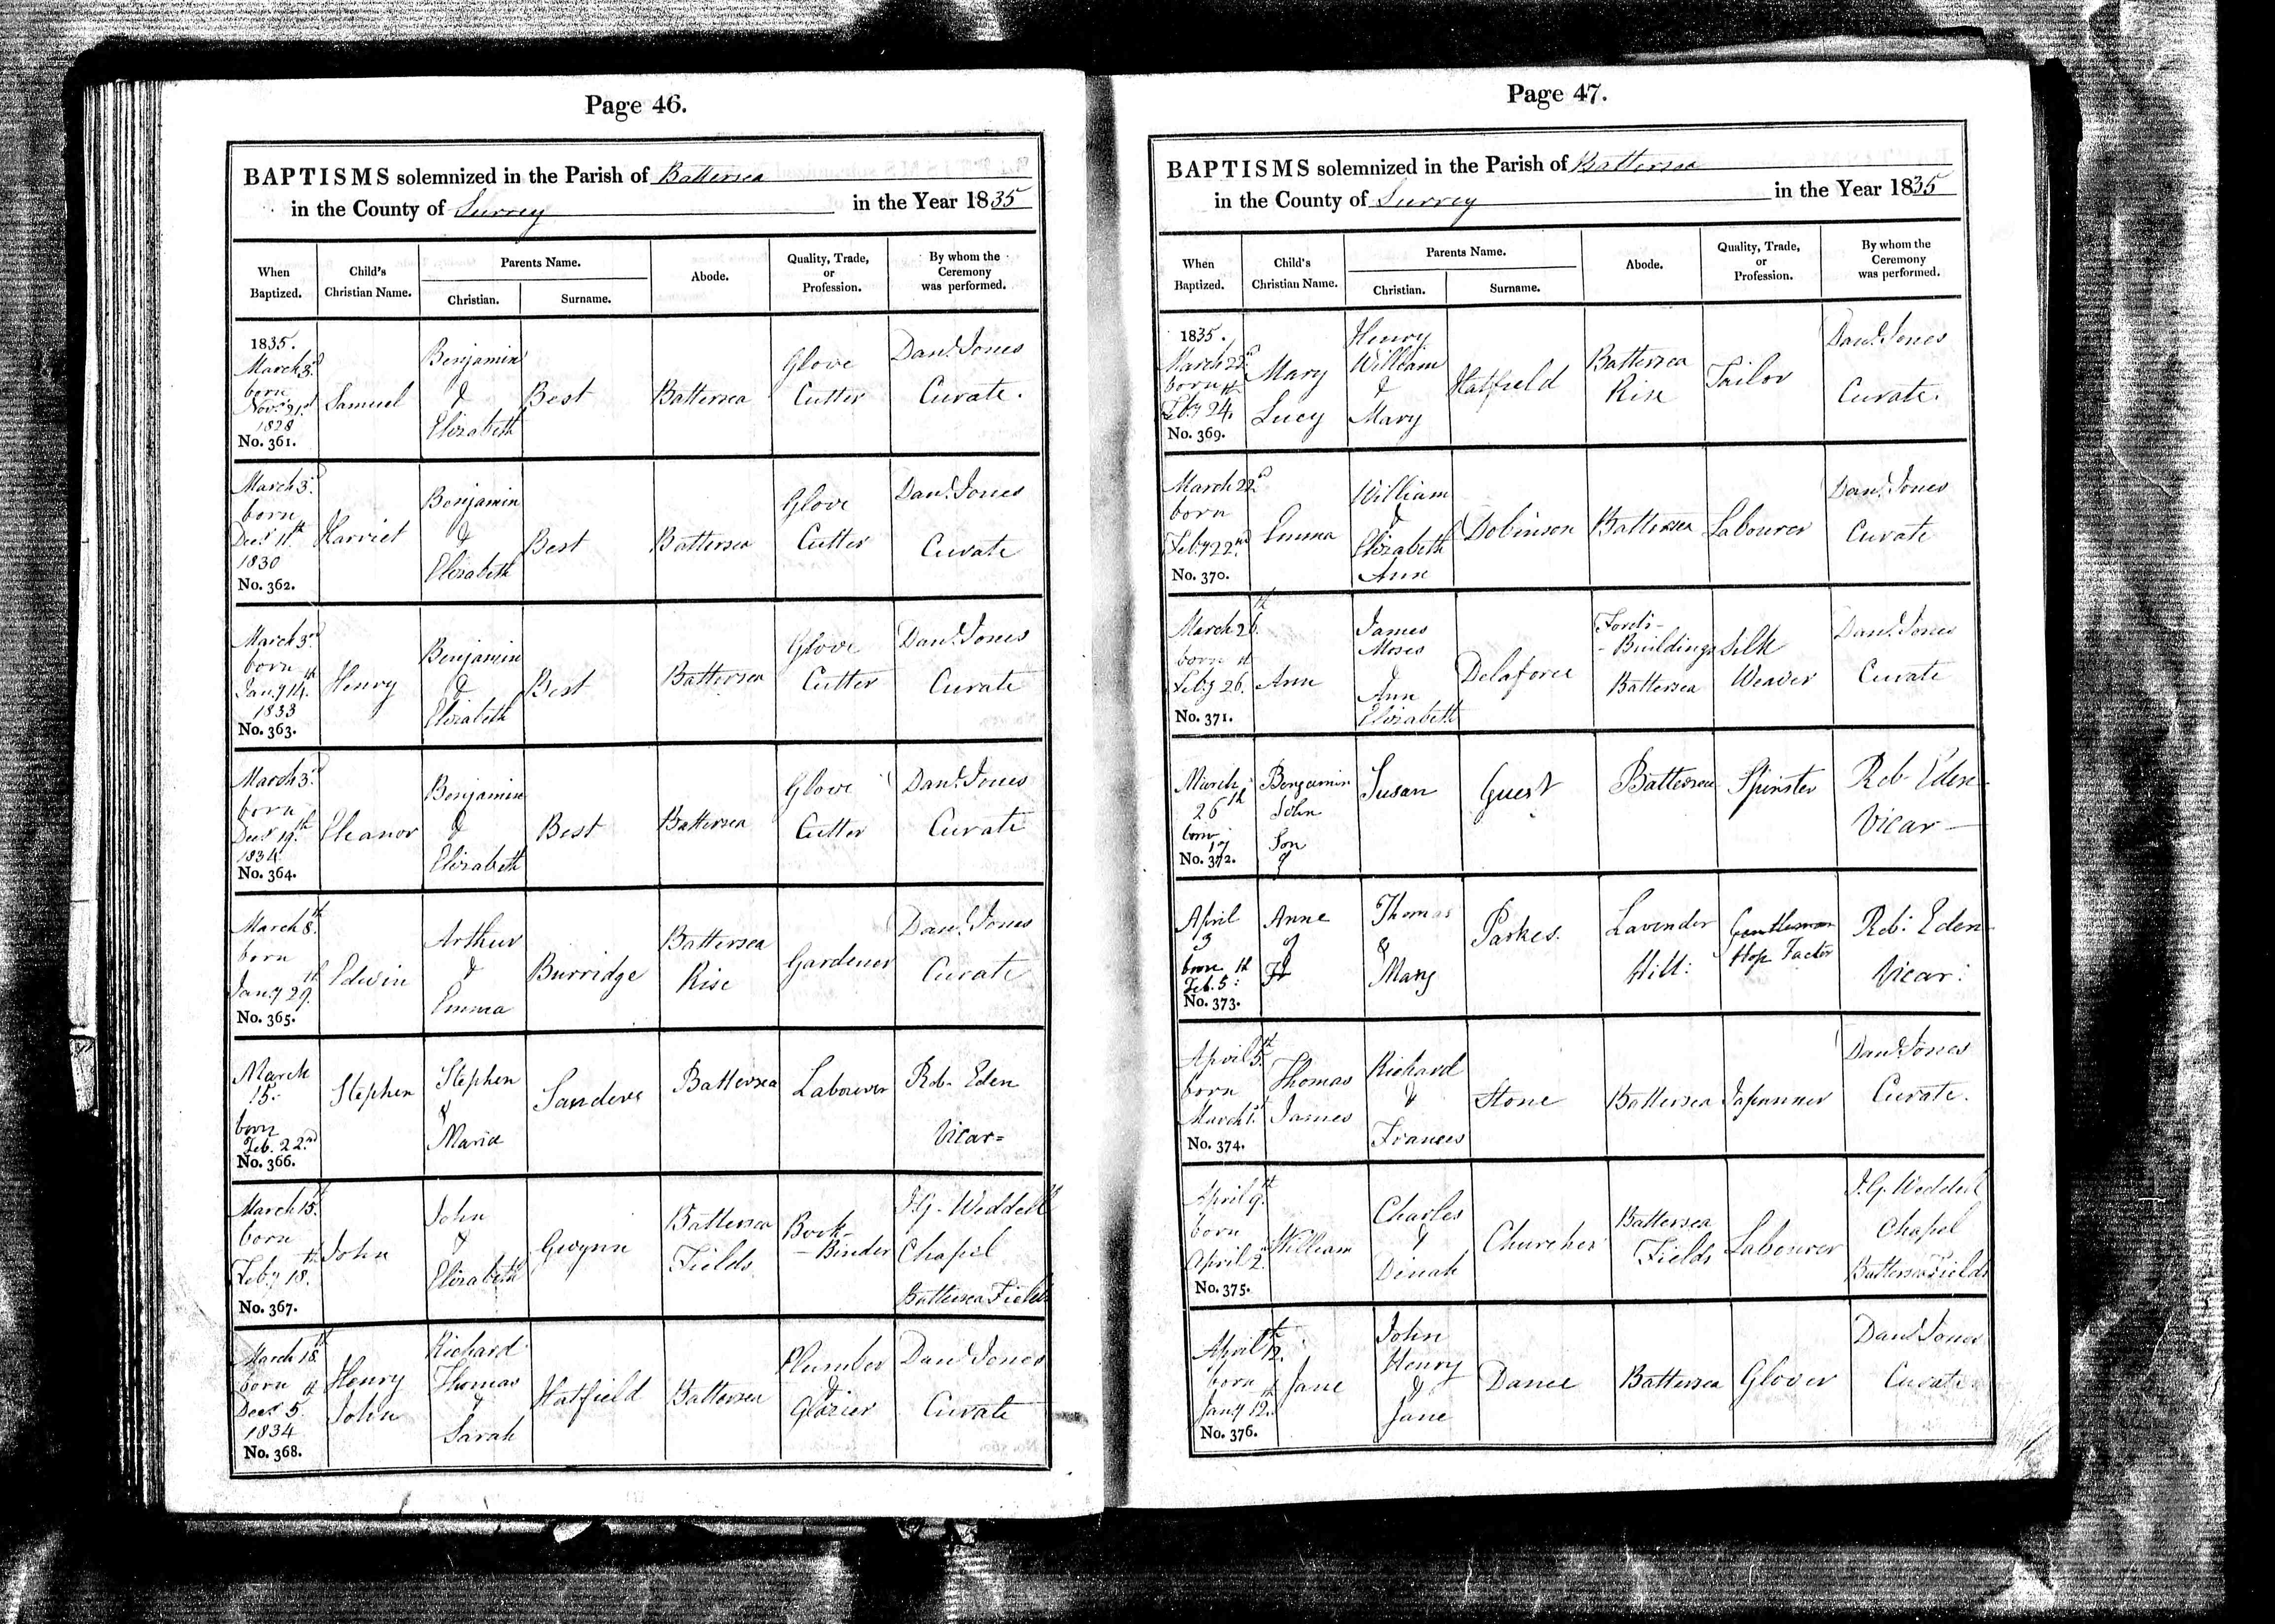 Page 46.
BAPTISMS solemnized in the Parish of Battersea
in the County of Surrey in the Year 1835
When Baptized. Child's Christian Name. Parents Name. Christian. Surname. Abode. Quality, Trade, or Profession. By whom the Ceremony was performed.
1835. March 3d. born Novr. 21st 1828 No. 361. Samuel Benjamin & Elizabeth Best Battersea Glove Cutter Danl. Jones Curate.
March 3d. born Decr 11th. 1830 No. 362. Harriet Benjamin & Elizabeth Best Battersea Glove Cutter Danl. Jones Curate
March 3rd born Jany 14th. 1833 No. 363. Henry Benjamin & Elizabeth Best Battersea Glove Cutter Danl. Jones Curate
March 3d. born Decr 19th. 1834. No. 364. Eleanor Benjamin & Elizabeth Best Battersea Glove Cutter Danl. Jones Curate
March 8th. born Jany 29th. No. 365. Edwin Arthur & Emma Burridge Battersea Rise Gardener Danl. Jones Curate
March 15. born Feb. 22nd No. 366. Stephen Stephen & Maria Sanders Battersea Labourer Rob. Eden Vicar
March 15th. born Feby 18th. No. 367. John John & Elizabeth Gwynn Battersea Fields Book-Binder J.G. Weddell Chapel Battersea Fields
March 18th born Decr 5th 1834 No. 368. Henry John Richard Thomas & Sarah Hatfield Battersea Plumber & Glazier Danl Jones Curate
Page 47.
BAPTISMS solemnized in the Parish of Battersea
in the County of Surrey in the Year 1835
When Baptized. Child's Christian Name. Parents Name. Christian. Surname. Abode. Quality, Trade, or Profession. By whom the Ceremony was performed.
1835. March 22d. born Feby 24th. No. 369. Mary Lucy Henry William & Mary Hatfield Battersea Rise Tailor Danl. Jones Curate.
March 22d. born Feby 22nd No. 370. Emma William & Elizabeth Ann Dobinson Battersea Labourer Danl. Jones Curate
March 26th. born Feby 26th. No. 371. Ann James Moses & Ann Elizabeth Delaforce Ford's-Buildings Battersea Silk Weaver Danl. Jones Curate
March 26th born 17 No. 372. Benjamin John Son of Susan Guest Battersea Spinster Rob. Eden Vicar
April 3 born Feb. 5th: No. 373. Anne of Thomas & Mary Parkes. Lavender Hill: Gentleman Hop Factor Rob: Eden Vicar:
April 5th. born March 1st. No. 374. Thomas James Richard & Frances Stone Battersea Japanner Danl. Jones Curate.
April 9th. born April 2 No. 375. William Charles & Dinah Churcher Battersea Fields Labourer J.G. Weddell Chapel Battersea Fields
April 12th. born Jany 12th. No. 376. Jane John Henry & Jane Dance Battersea Glover Danl Jones Curate